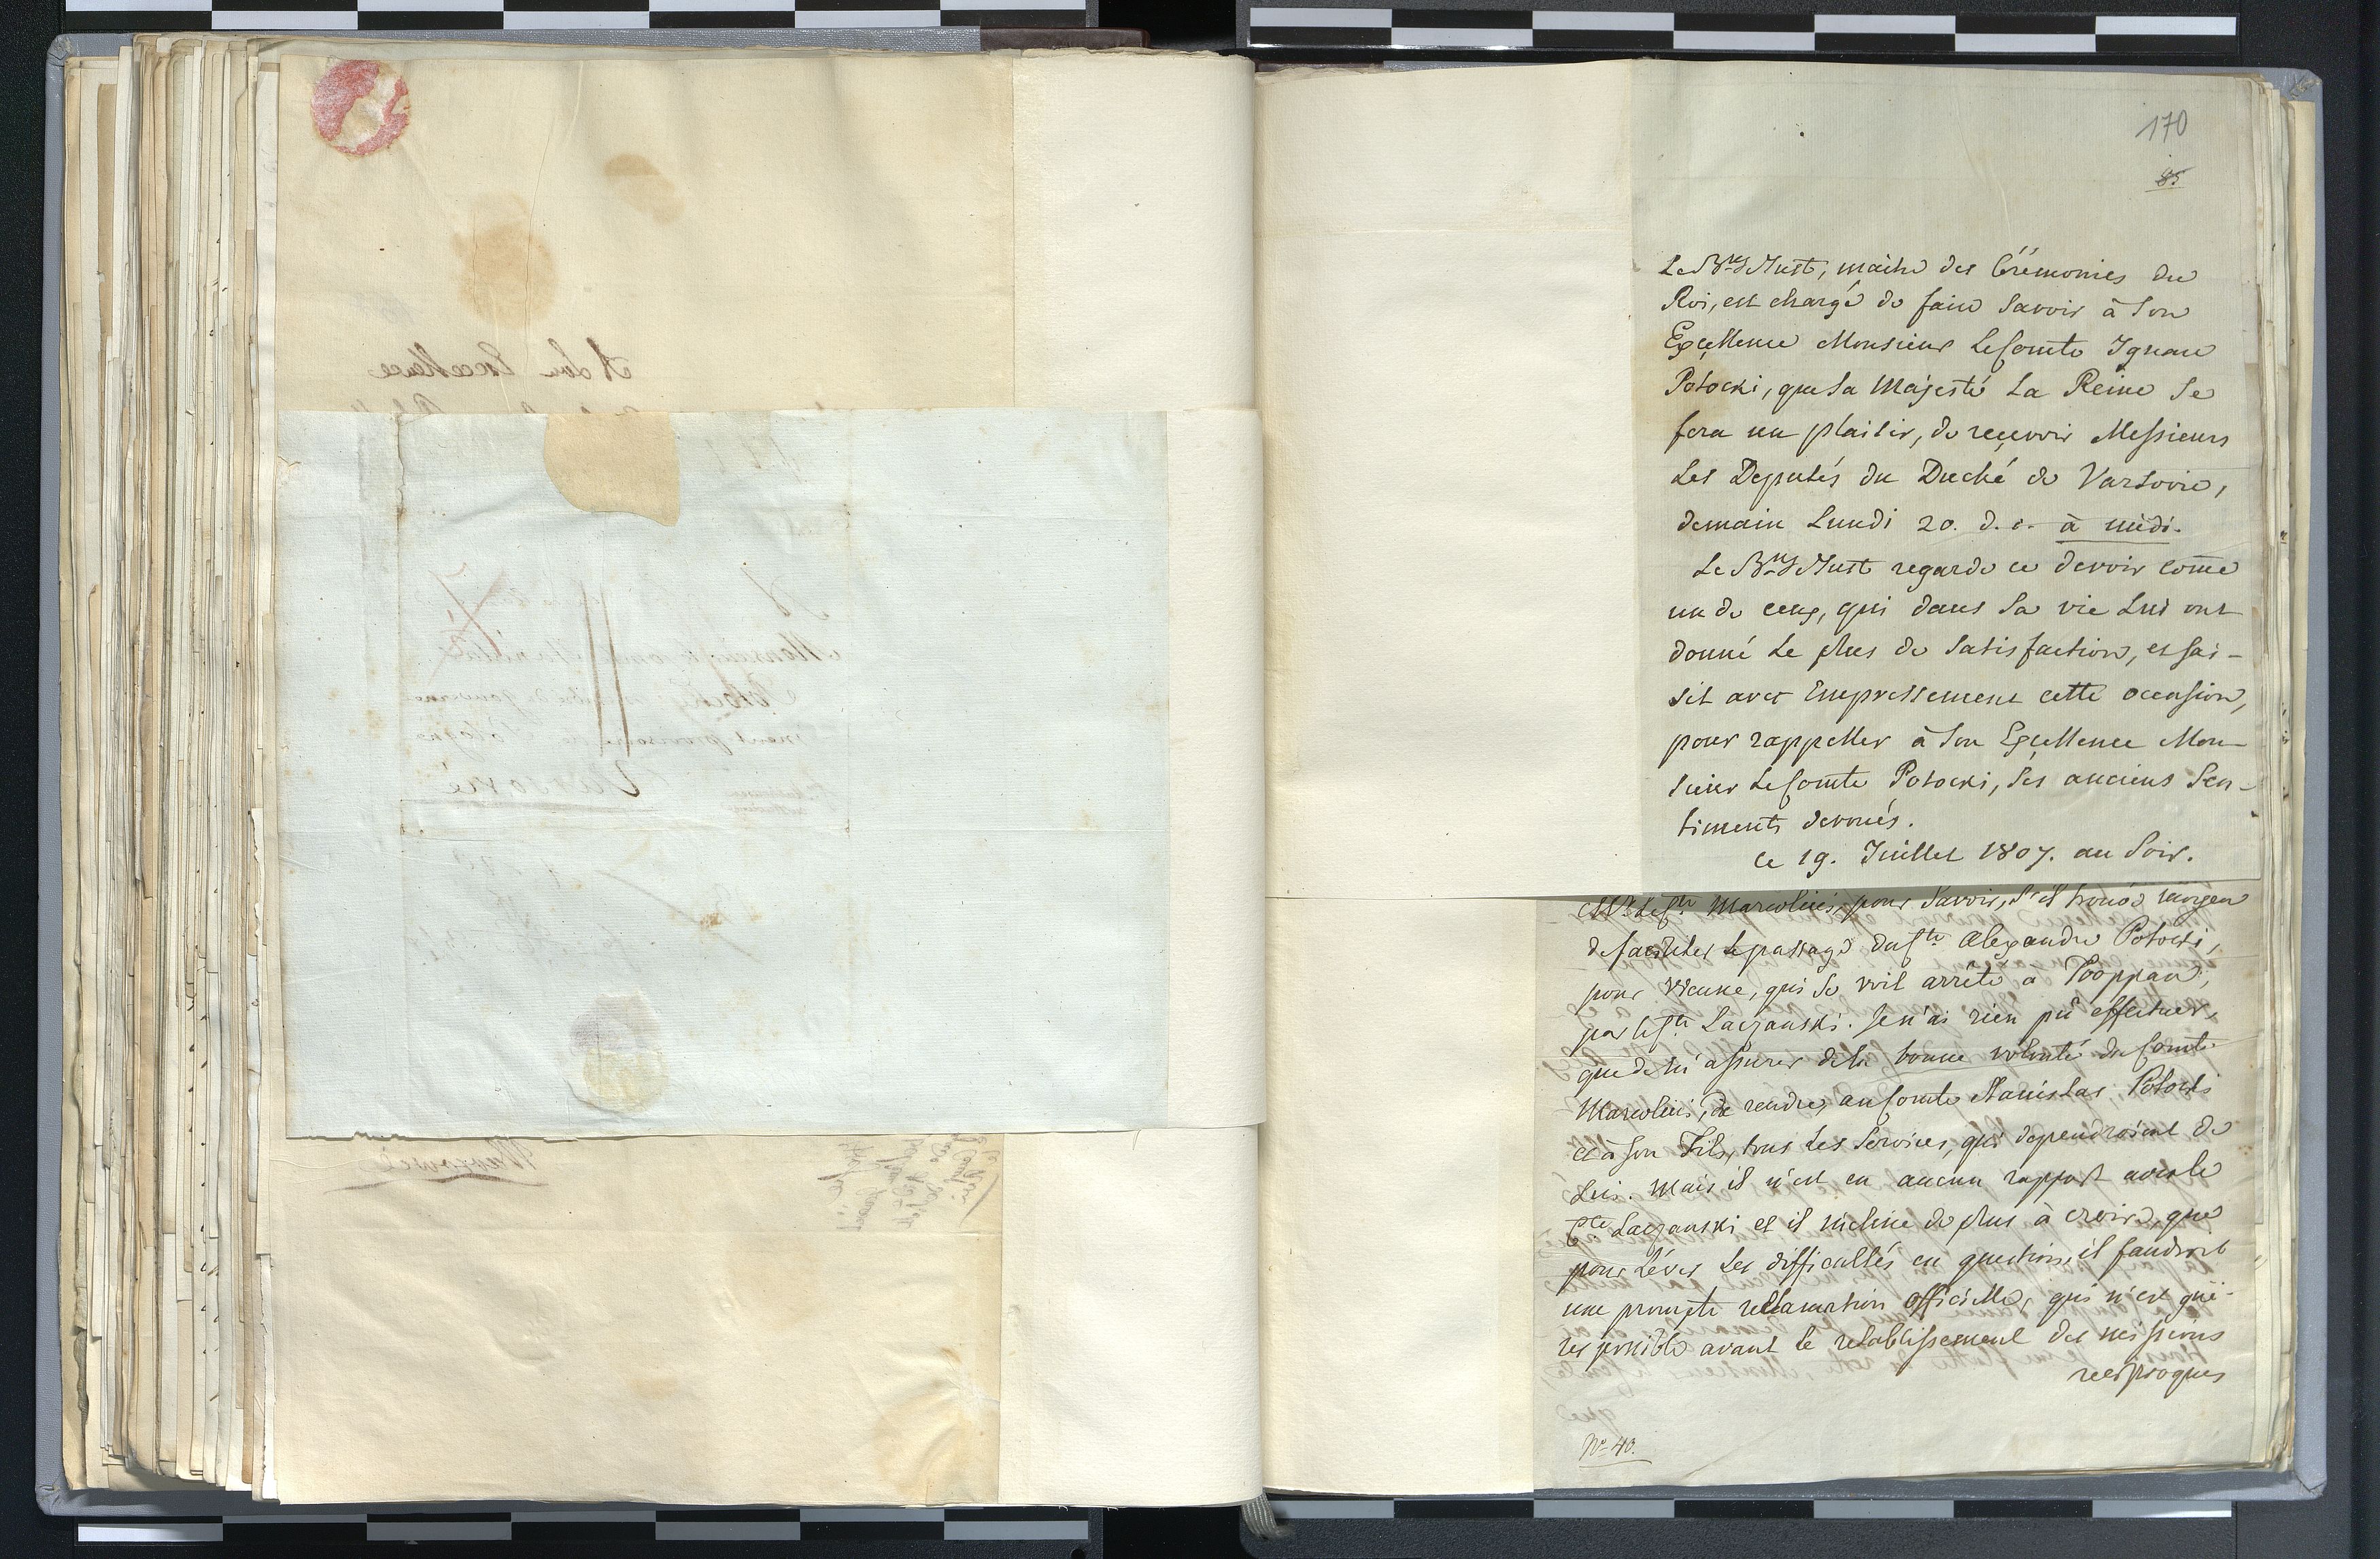 A Son Excellence
Varsovie
Warsovie
170
85
Le B^n d'Just, maitre des Cérémonies du
Roi, est chargé de faire Savoir à Son
Exçellence Monsieur Le Comte Ignace
Potocki, que Sa Majesté La Reine Se
fera un plaisir, de reçevoir Messieurs
Les Deputés du Duché de Varsovie,
demain Lundi 20. d. c. à midi.
Le B^n d'Just regarde ce devoir come
un de ceux, qui dans Sa vie Lui ont
donné Le plus de Satisfaction, et sai-
sit avec Empressement cette occasion,
pour rappeller à Son Exçellence Mon-
sieur Le Comte Potocki, Ses anciens Sen-
timents devoués.
ce 19. Juillet 1807. au Soir.
Le C^te Marcolini, pour Savoir, s'il trouve moyen
de faciliter Le passage du C^te Alexandre Potocki,
pour Vienne, qui Se voit arrêté à Troppau,
par le C^te Laczanski. Je n'ai rien pû effectuer,
que de m'assurer de la bonne volonté du Comte
Marcolini, de rendre au Comte Stanislas Potocki
et à Son Fils, tous Les Services, qui dependroient de
Lui. Mais il n'est en aucun rapport avec le
C^te Laczanski et il incline de plus à croire, que
pour Léver Les difficultés en question, il faudroit
une prompte reclamation officielle, qui n'est gué-
res possible avant le retablissement des missions
reciproques
N^o 40.